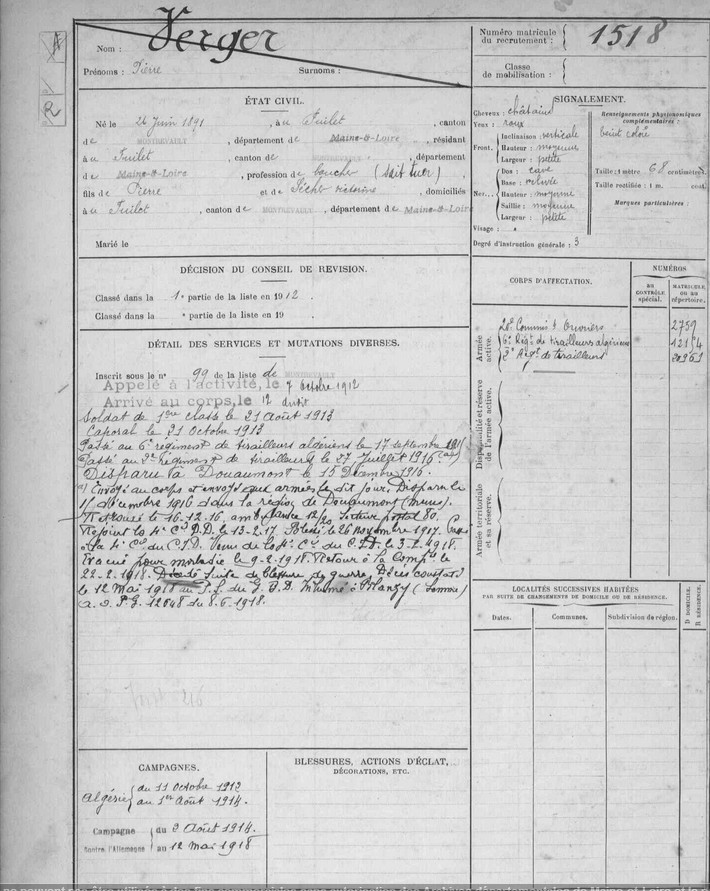 A
R
Nom : Verger
Prénoms : Pierre Surnoms :
ÉTAT CIVIL.
Né le 24 Juin 1891, à Fuilet, canton
de MONTREVAULT, département de Maine-&-Loire, résidant
à Fuilet, canton de MONTREVAULT, département
de Maine-&-Loire, profession de boucher (sait tuer)
fils de Pierre et de Pichon Victorine, domiciliés
à Fuilet, canton de MONTREVAULT, département de Maine-&-Loire
Marié le
DÉCISION DU CONSEIL DE REVISION.
Classé dans la 1e partie de la liste en 1912.
Classé dans la " partie de la liste en 19
DÉTAIL DES SERVICES ET MUTATIONS DIVERSES.
Inscrit sous le n° 99 de la liste de MONTREVAULT
Appelé à l'activité, le 7 octobre 1912
Arrivé au corps, le 12 dudit
Soldat de 1ère classe le 21 Août 1913
Caporal le 21 Octobre 1913
Passé au 6e régiment de tirailleurs algériens le 17 septembre
Passé au 2e régiment de tirailleurs le 27 Juillet 1916 (a)
Disparu à Douaumont le 15 Décembre 1916.
a) Envoyé au corps et envoyé aux armées le dit jour. Disparu le
15 décembre 1916 dans la région de Douaumont (Meuse).
Retrouvé le 16-12-16, ambulance 12/ Secteur postal 80.
Rejoint la 4e Cie D.D. le 13-2-17. Blessé le 26 novembre 1917. Passé
à la 4e Cie du C.I.D. Venu de la 4e Cie du C.I.D. le 3-2-1918.
Evacué pour maladie le 9-2-1918. Retour à la Compie le
22-2-1918. Décédé suite de blessure de guerre. Décès constaté
le 12 Mai 1918 au P.S. du G.B.D. à Blangy (Somme)
a. d. P.G. 12648 du 8.6.1918.
CAMPAGNES.
Algérie du 11 Octobre 1912
au 1er Août 1914.
Campagne contre l'Allemagne du 2 Août 1914.
au 12 Mai 1918
BLESSURES, ACTIONS D'ÉCLAT,
DÉCORATIONS, ETC.
Numéro matricule
du recrutement : 1518
Classe
de mobilisation :
SIGNALEMENT.
Cheveux : châtains
Yeux : roux
Front. Inclinaison : verticale
Hauteur : moyenne
Largeur : petite
Nez. Dos : cave
Base : relevée
Hauteur : moyenne
Saillie : moyenne
Largeur : petite
Visage :
Renseignements physionomiques
complémentaires :
teint coloré
Taille : 1 mètre 68 centimètres
Taille rectifiée : 1 m. cent.
Marques particulières :
Degré d'instruction générale : 3
CORPS D'AFFECTATION.
NUMÉROS
AU CONTRÔLE spécial.
MATRICULE, OU AU répertoire.
Armée active.
20e Commis & Ouvriers 2759
6e Régt de tirailleurs algériens 12154
2e Régt de tirailleurs
Disponibilité et réserve de l'armée active.
Armée territoriale et sa réserve.
LOCALITÉS SUCCESSIVES HABITÉES
PAR SUITE DE CHANGEMENTS DE DOMICILE OU DE RÉSIDENCE.
Dates. Communes. Subdivision de région. D DOMICILE. R RÉSIDENCE.